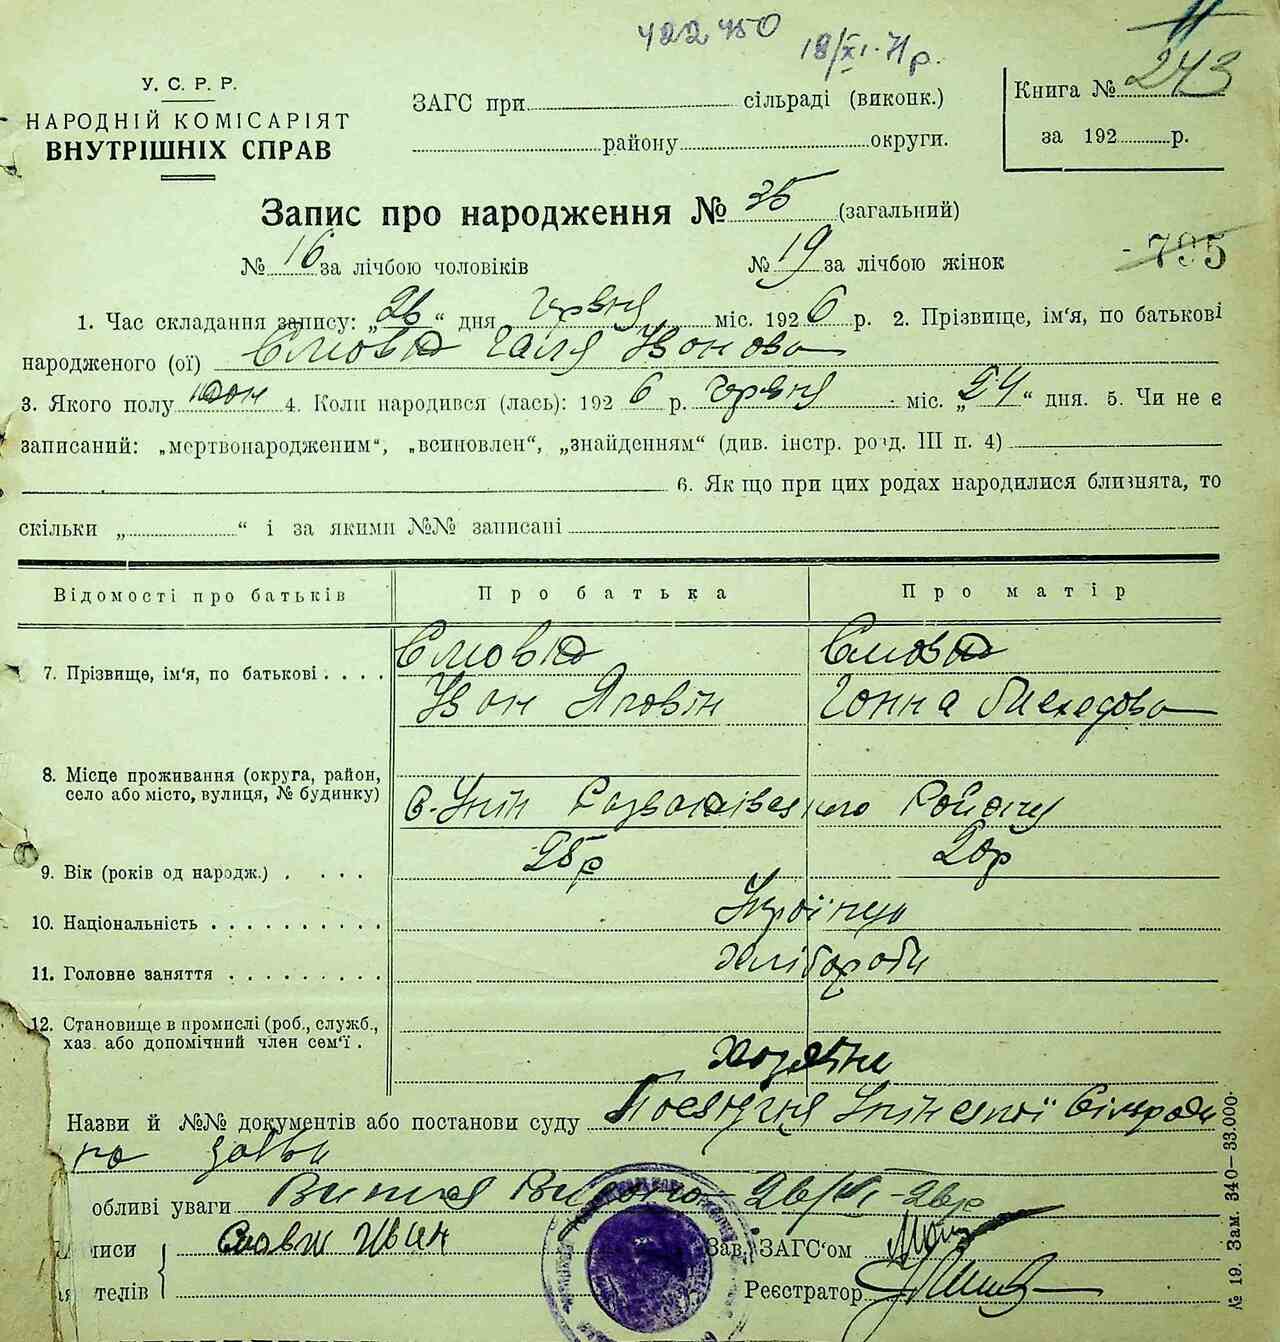 422450
18/XI-71р.
243
У. С. Р. Р.
НАРОДНІЙ КОМІСАРІЯТ
ВНУТРІШНІХ СПРАВ
ЗАГС при сільраді (виконк.)
району округи.
Книга № 243
за 192 р.
Запис про народження № 35 (загальний)
№ 16 за лічбою чоловіків № 19 за лічбою жінок
795
1. Час складання запису: „26“ дня червня міс. 1926 р. 2. Прізвище, ім'я, по батькові
народженого (ої) Галя Іванова
3. Якого полу жон 4. Коли народився (лась): 1926 р. червня міс. „24“ дня. 5. Чи не є
записаний: „мертвонародженим“, „всиновлен“, „знайденням“ (див. інстр. розд. III п. 4)
6. Як що при цих родах народилися близнята, то
скільки „ “ і за якими №№ записані
Відомості про батьків Про батька Про матір
7. Прізвище, ім'я, по батькові . . . .
Іван Яковін Ганна
8. Місце проживання (округа, район,
село або місто, вулиця, № будинку)
с. Унін Розважівського Району
9. Вік (років од народж.) . . . . 25р 20р
10. Національність . . . . . . . . . . Українці
11. Головне заняття . . . . . . . . . Хлібороби
12. Становище в промислі (роб., служб.,
хаз. або допомічний член сем'ї .
Хазяїни
Назви й №№ документів або постанови суду Посвідчення Унінської Сільради
по заяви
обливі уваги Випись Видано 26/VI-26р
иси Іван Зав. ЗАГС'ом
телів Реєстратор
№ 19. Зам. 340—33.000.